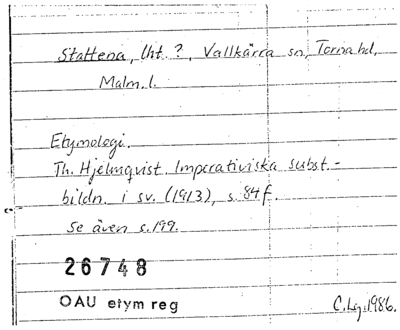 Stattena, lht. ?, Vallkärra sn, Torna hd,
Malm. l.
Etymologi.
Th. Hjelmqvist. Imperativiska subst.-
bildn. i sv. (1913), s. 84 f.
Se även s. 199.
26748
OAU etym reg
C. Lg. 1986.